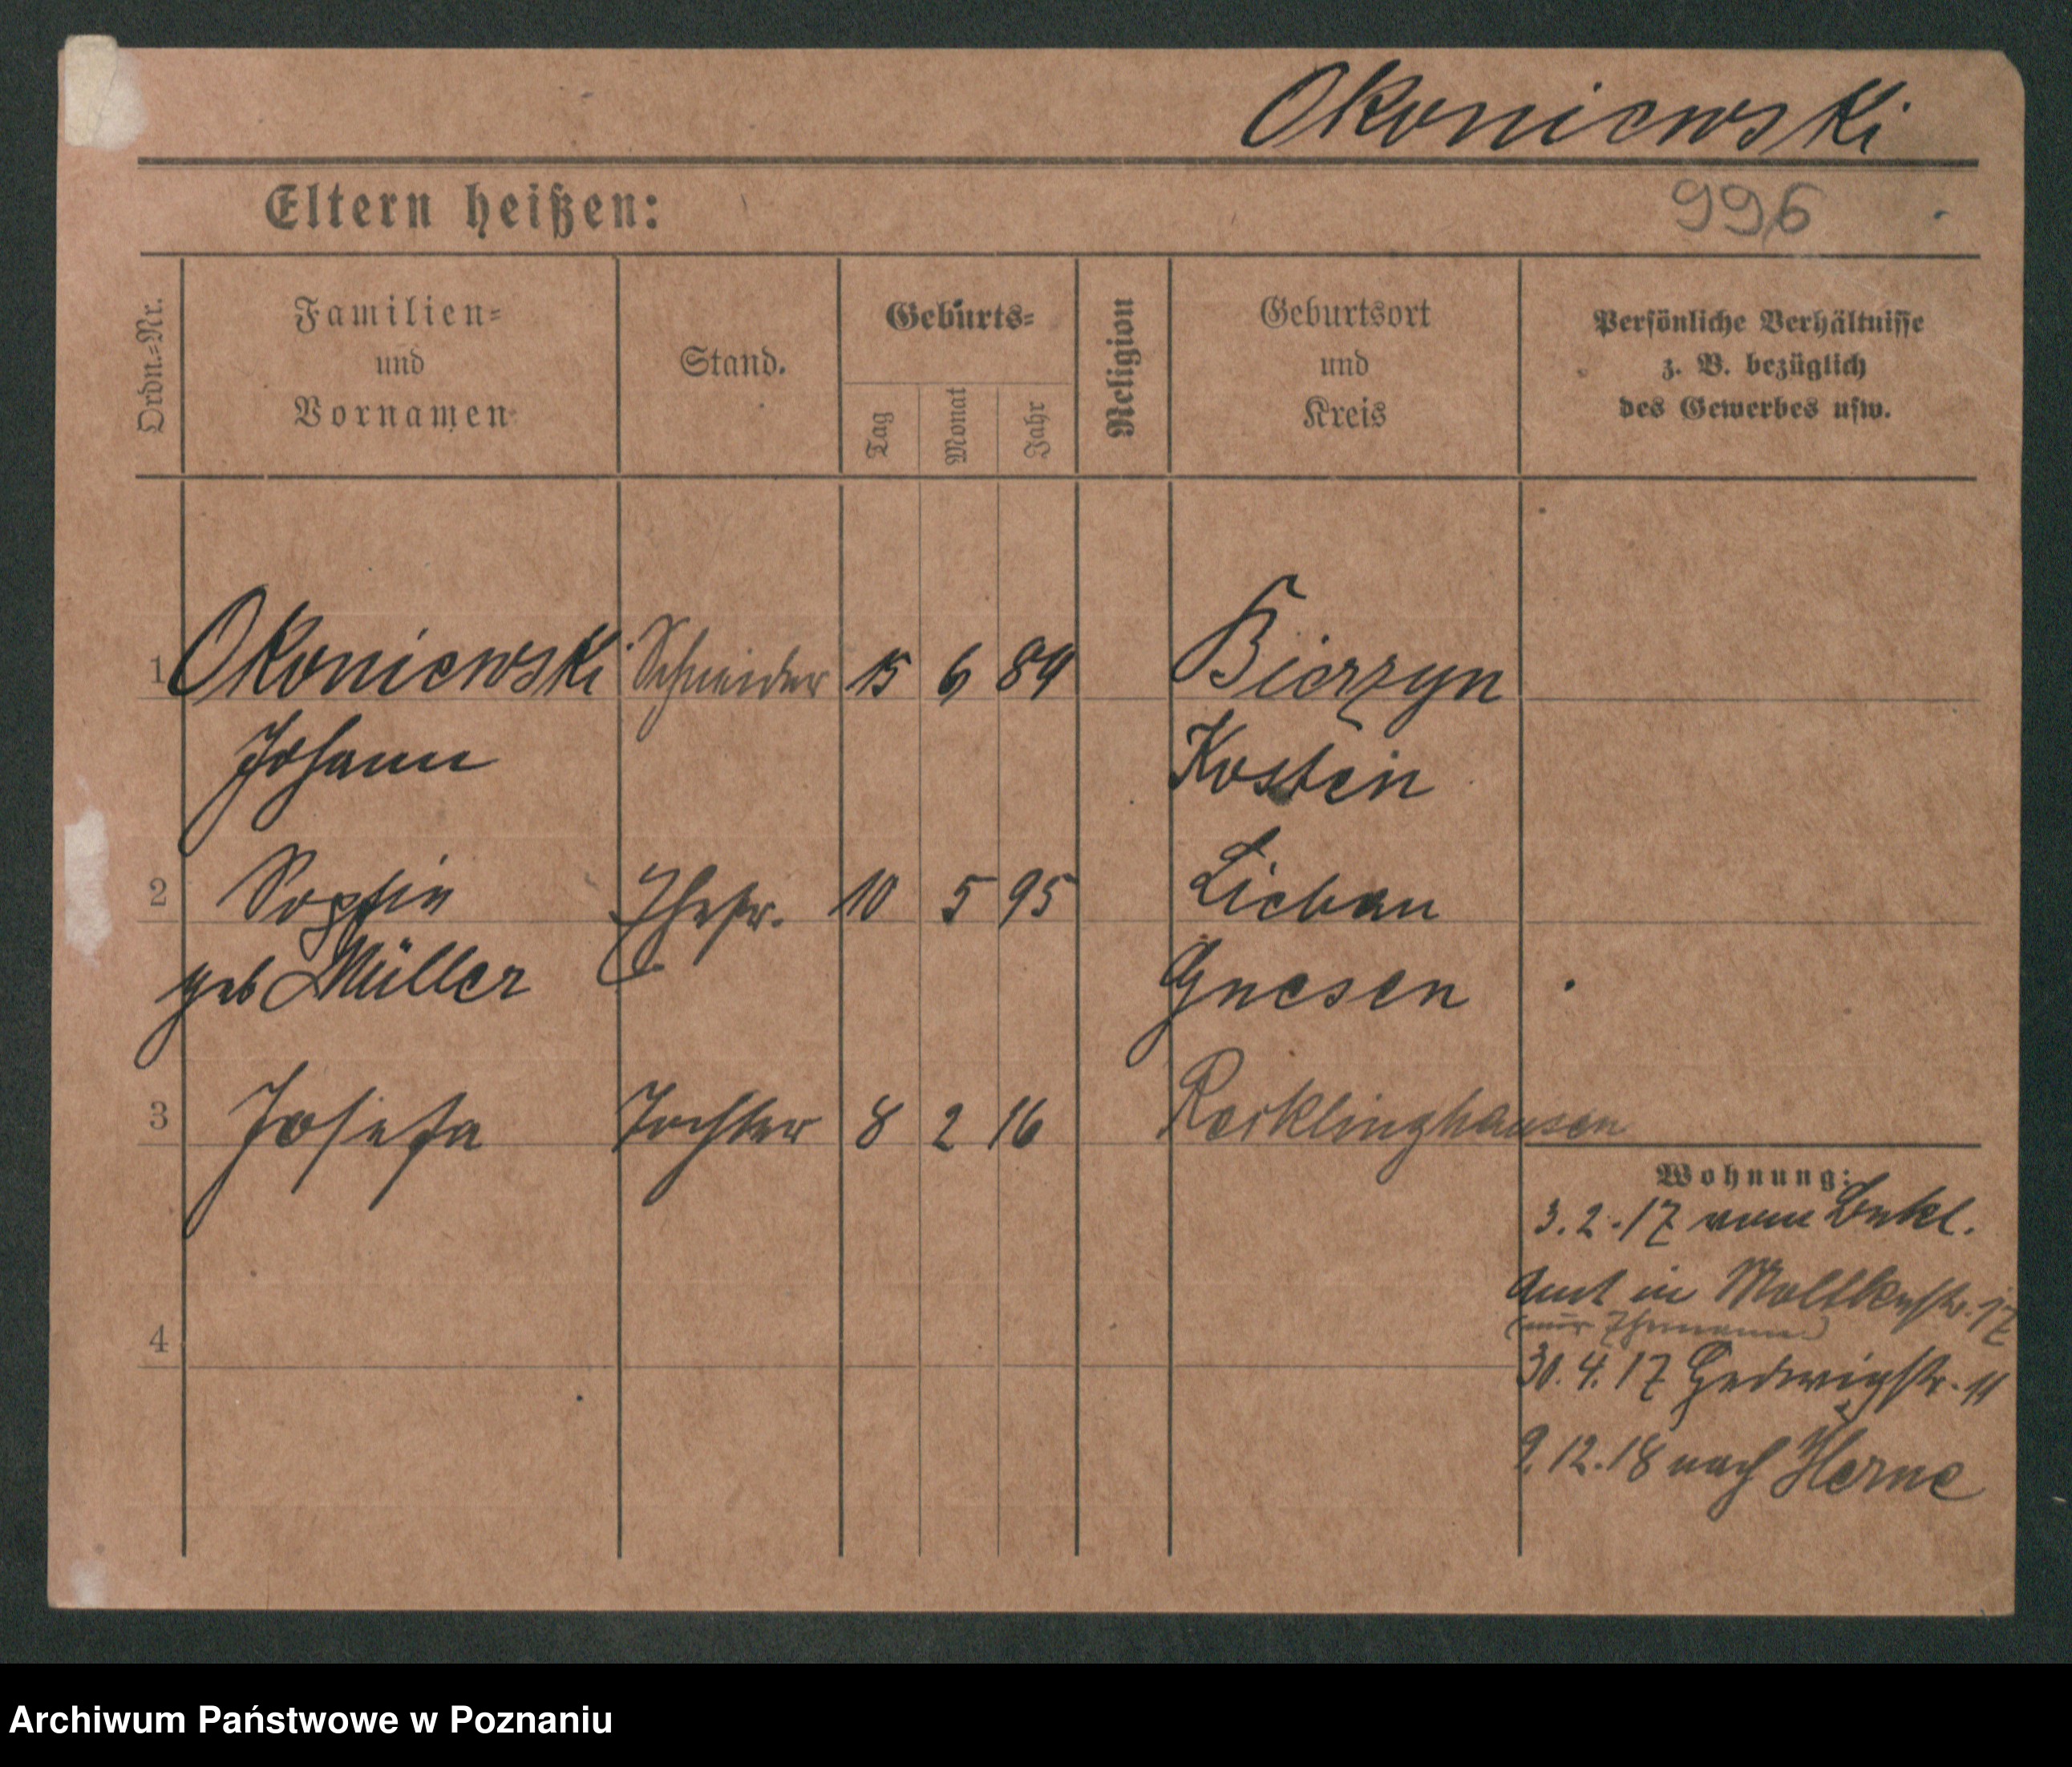 Okoniewski
Eltern heißen:
996
Ordn.=Nr.
Familien=
und
Vornamen
Stand.
Geburts=
Tag
Monat
Jahr
Religion
Geburtsort
und
Kreis
Persönliche Verhältnisse
z. B. bezüglich
des Gewerbes usw.
1 Okoniewski Schneider 15 6 84 Bierzyn
Johann Kosten
2 Sophie Ehefr. 10 5 95 Liebau
geb Müller Gnesen
3 Josefa Tochter 8 2 16 Recklinghausen
Wohnung:
3.2.17 vom
Amt in Moltkestr. 17
(nur Ehemann)
4
30.4.17 Hedwigstr. 11
9.12.18 nach Herne
Archiwum Państwowe w Poznaniu